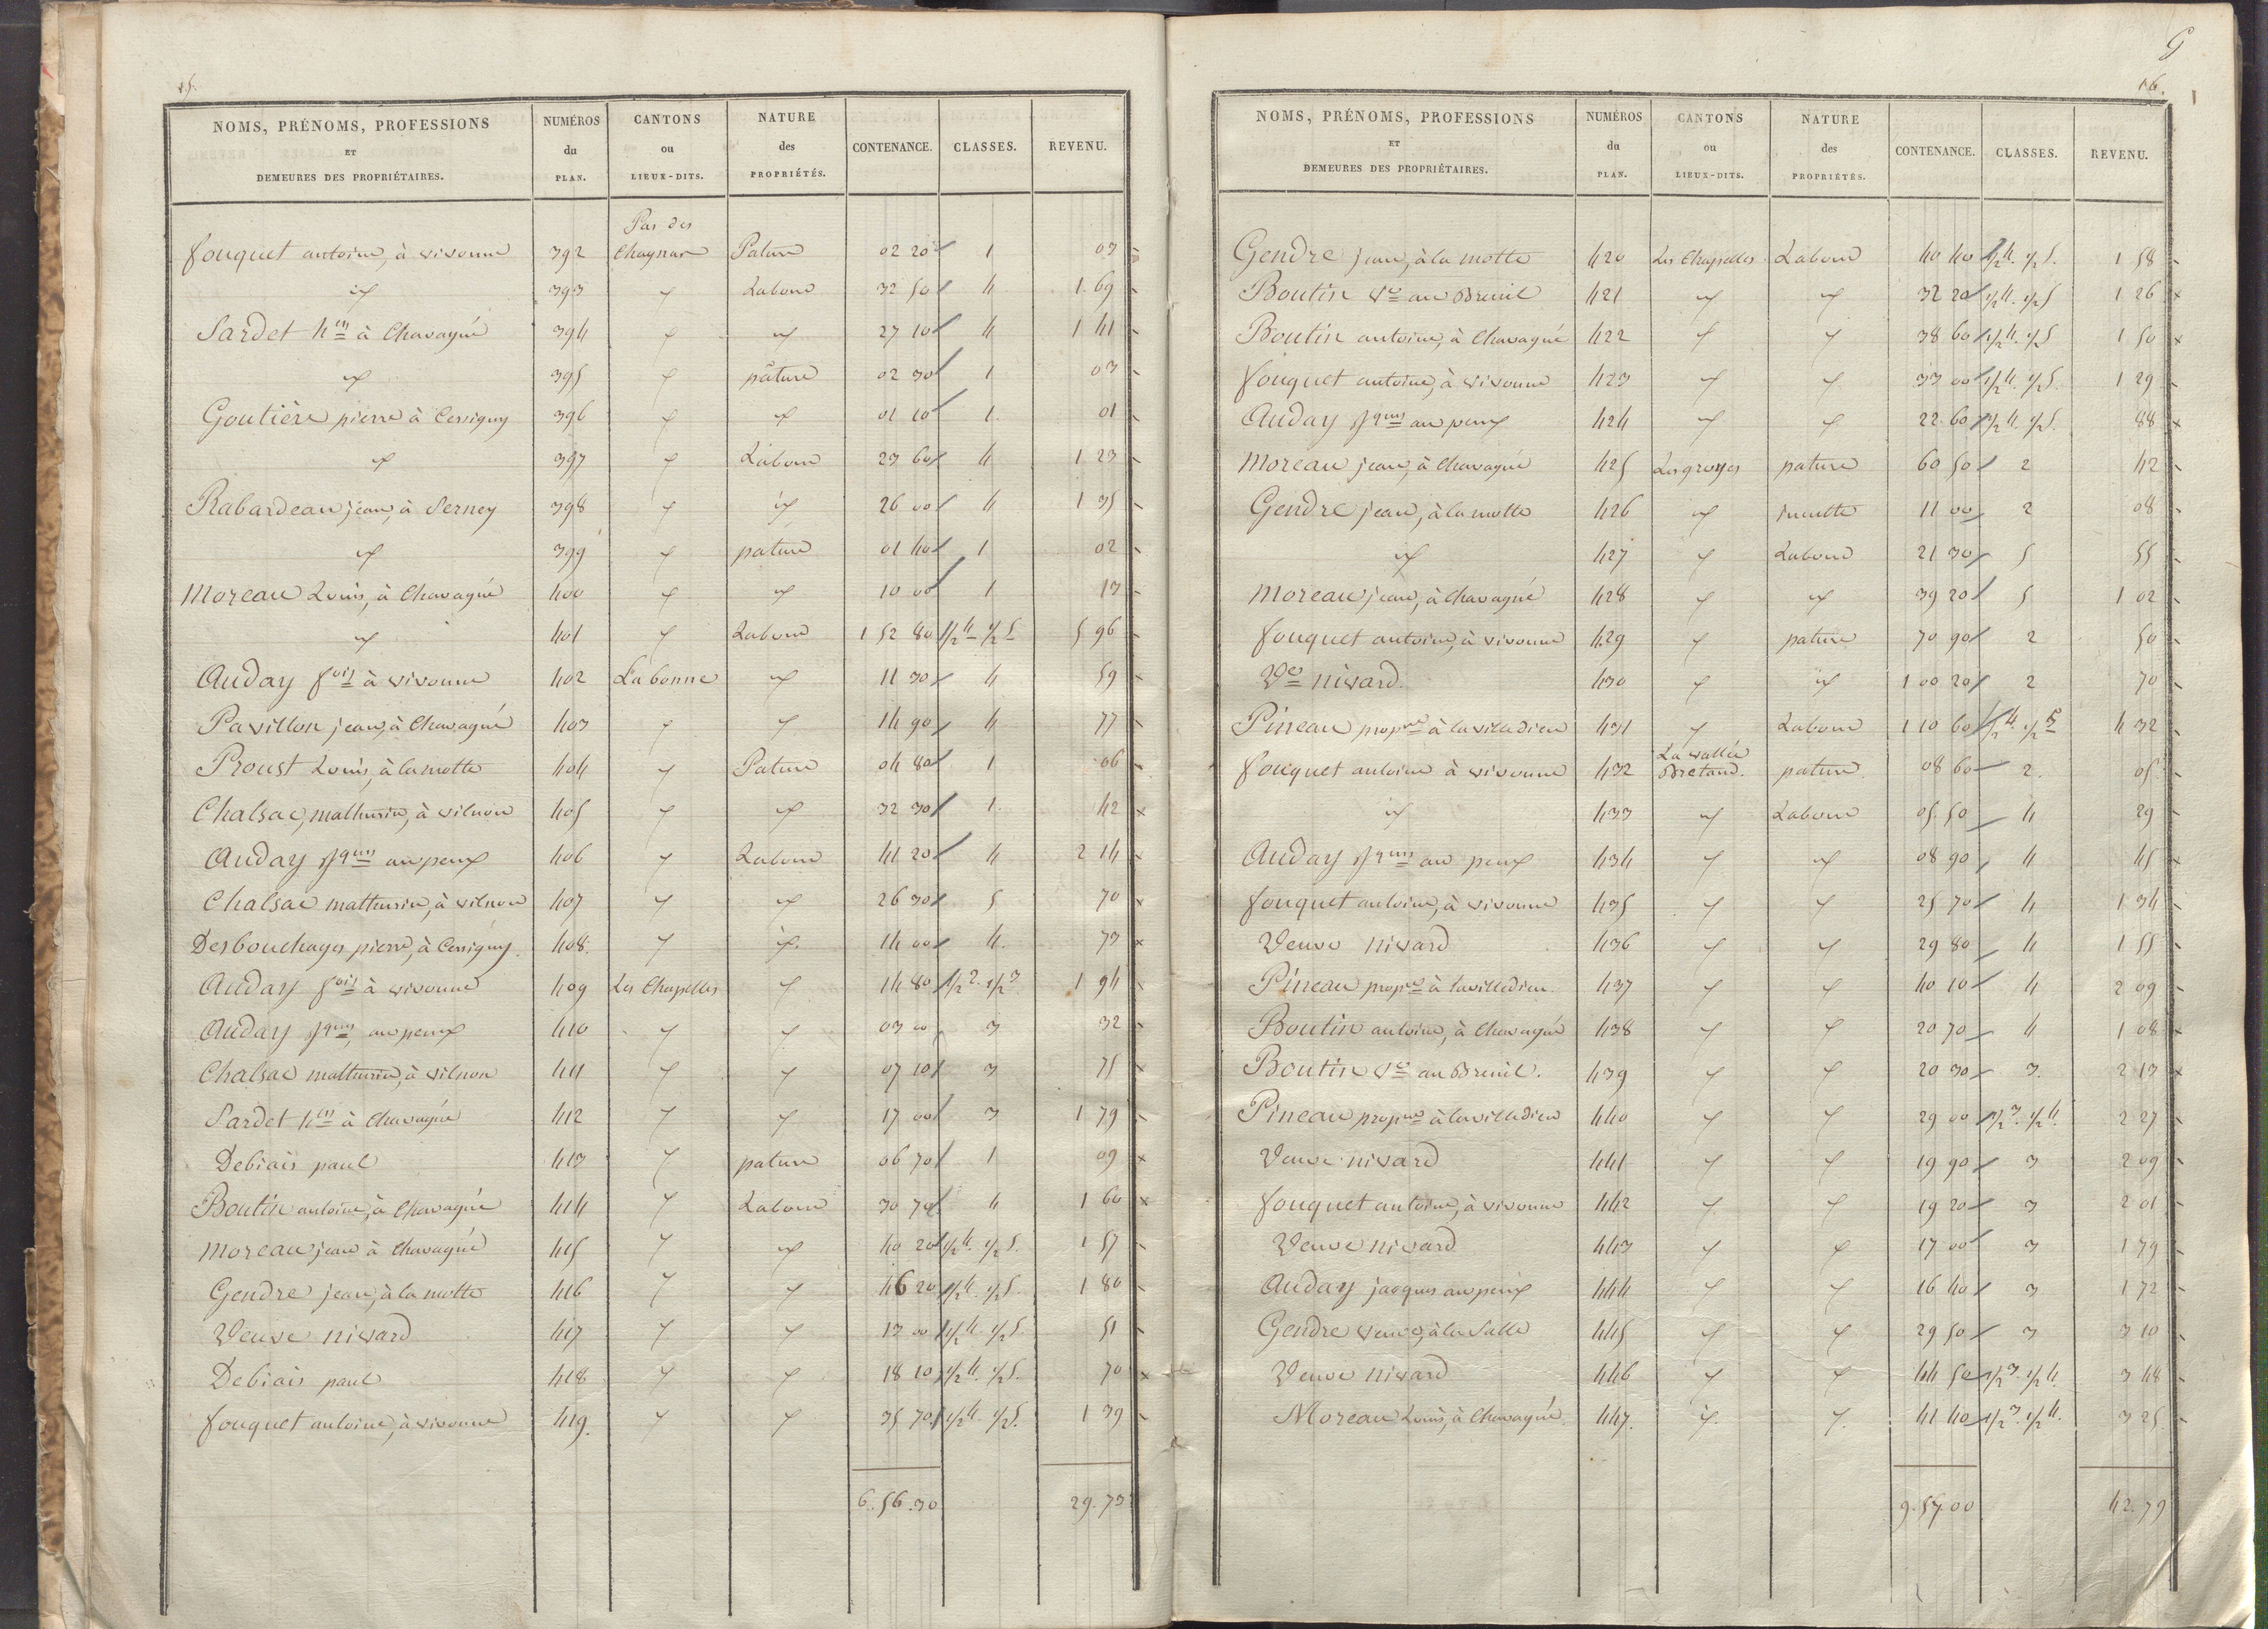 15.
NOMS, PRÉNOMS, PROFESSIONS ET DEMEURES DES PROPRIÉTAIRES. NUMÉROS du PLAN. CANTONS ou LIEUX-DITS. NATURE des PROPRIÉTÉS. CONTENANCE. CLASSES. REVENU.
Pas des
fouquet antoine, à vivonne 392 Chagnas Pature 02 20 1 03
id 393 id Labour 32 50 4 1.69
Sardet h^ri à Chavagné 394 id id 27 10 4 1 41
id 395 id pâture 02 30 1 03
Goutière pierre à Cersigny 396 id id 01 10 1. 01
id 397 id Labour 23 60 4 1 23
Rabardeau jean, à Serney 398 id id 26 00 4 1 35
id 399 id pature 01 40 1 02
Moreau Louis, à Chavagné 400 id id 10 00 1 13
id 401 id Labour 1 52 80 1/2 4 1/2 5 5 96
Auday f^ois à vivonne 402 La bonne id 11 30 4 59
Pavillon jean, à Chavagné 403 id id 14 90 4 77
Proust Louis, à la motte 404 id Pature 04 80 1 06
Chalsac, mathurin, à vilnon 405 id id 32 30 1. 42
Auday Jques au peux 406 id Labour 41 20 4 2 14
Chalsac mathurin, à vilnon 407 id id 26 30 5 70
Desbouchages pierre, à Cersigny. 408. id id. 14 00 4. 73
Auday f^ois à vivonne 409 Les Chapelles id 14 80 1/2 2. 1/2 3 1 94
Auday Jques, au peux 410 id id 03 00 3 32
Chalsac mathurin, à vilnon 411 id id 07 10 3 75
Sardet h^ri à Chavagné 412 id id 17 00 3 1 79
Debiais paul 413 id pature 06 70 1 09
Boutin antoine, à Chavagné 414 id Labour 30 70 4 1 60
Moreau jean à Chavagné 415 id id 40 20 1/2 4. 1/2 5. 1 57
Gendre jean, à la motte 416 id id 46 20 1/2 4. 1/2 5. 1 80
Veuve nivard 417 id id 13 00 1/2 4. 1/2 5. 51
Debiais paul 418 id id 18 10 1/2 4. 1/2 5. 70
fouquet antoine, à vivonne 419. id id 35 70. 1/2 4. 1/2 5. 1 39
6.56.30 29.73
G
16.
NOMS, PRÉNOMS, PROFESSIONS ET DEMEURES DES PROPRIÉTAIRES. NUMÉROS du PLAN. CANTONS ou LIEUX-DITS. NATURE des PROPRIÉTÉS. CONTENANCE. CLASSES. REVENU.
Gendre jean, à la motte 420 Les Chapelles Labour 40 40 1/2 4. 1/2 5. 1 58
Boutin Ve au Breuil 421 id id 32 20 1/2 4. 1/2 5 1 26
Boutin antoine, à Chavagné 422 id id 38 60 1/2 4. 1/2 5 1 50
fouquet antoine, à vivonne 423 id id 33 00 1/2 4. 1/2 5. 1 29
Auday Jques au peux 424 id id 22 60 1/2 4. 1/2 5. 88
Moreau jean, à Chavagné 425 Les groyes pature 60 50 2 42
Gendre jean, à la motte 426 id 11 00 2 08
id 427 id Labour 21 30 5 55
Moreau jean, à Chavagné 428 id id 39 20 5 1 02
fouquet antoine, à vivonne 429 id pature 70 90 2 50
Ve nivard. 430 id id 1 00 20 2 70
Pineau prop^re à la villedieu 431 id Labour 1 10 60 1/2 4. 1/2 5 4 32
La vallée
fouquet antoine à vivonne 432 Bretaud. pature. 08 60 2. 05
id 433 id Labour 05.50 4 29
Auday Jques au peux 434 id id 08 90 4 45
fouquet antoine, à vivonne 435 id id 25 70 4 1 34
Veuve nivard 436 id id 29 80 4 1 55
Pineau prop^re à lavilledieu 437 id id 40 10 4 2 09
Boutin antoine, à Chavagné 438 id id 20 70 4 1 08
Boutin Ve au Breuil. 439 id id 20 30 3. 2 13
Pineau prop^re à lavilledieu 440 id id 29 00 1/2 3. 1/2 4. 2 27
Veuve nivard 441 id id 19 90 3 2 09
fouquet antoine, à vivonne 442 id id 19 20 3 2 01
Veuve nivard 443 id id 17 00 3 1 79
Auday jacques au peux 444 id id 16 40 3 1 72
Gendre veuve, à la Salle 445 id id 29 50 3 3 10
Veuve nivard 446 id id 44 50 1/2 3. 1/2 4. 3 48
Moreau Louis, à Chavagné. 447. id. id. 41 40 1/2 3. 1/2 4. 3 25.
9.57.00 42.79